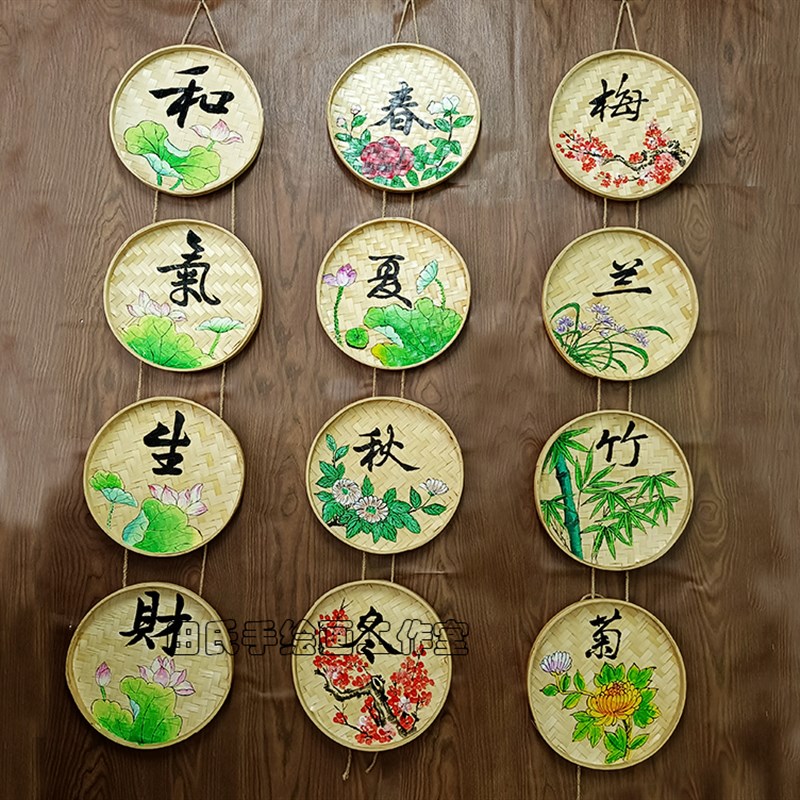 和
氣
生
財
春
夏
秋
冬
梅
兰
竹
菊
田氏手绘画工作室